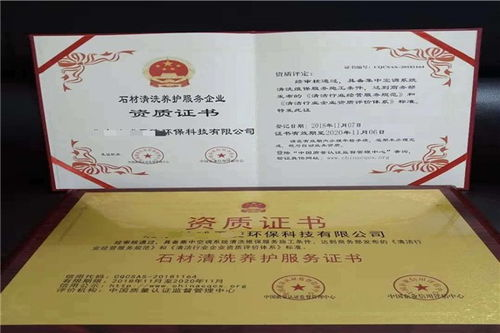 石材清洗养护服务企业
资质证书
环保科技有限公司
证书编号:CQCSAS-20181164
资质评定:
经审核通过,具备集中空调系统
清洗维保服务施工条件,达到商务部
发布的《清洁行业经营服务规范》和
《清洁行业企业资质评价体系》标准,
特发此证
登记日期2018年11月07日
证书有效期至2020年11月06日
在"中国质量认证监督管理中心"查询,
资质证书
环保科技有限公司
经审核通过,具备集中空调系统清洗维保服务施工条件,达到商务部发布的《清洁行
业经营服务规范》和《清洁行业企业资质评价体系》标准
石材清洗养护服务证书
信用代码:CQCSAS-20181164
有效期限:2018年11月至2020年11月
公示网站:http://www.chinacqcs.org
评价机构:中国质量认证监督管理中心